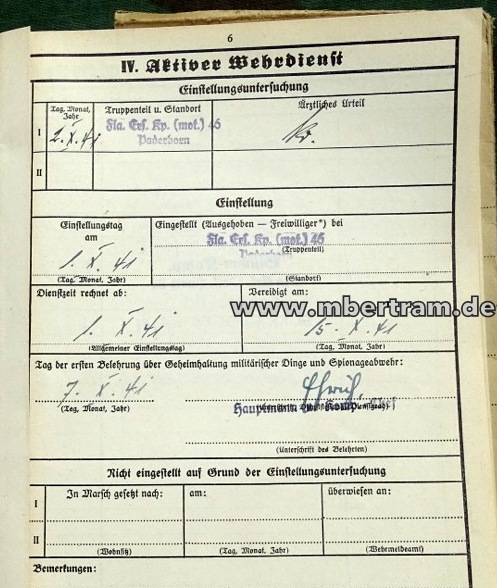 6
IV. Aktiver Wehrdienst
Einstellungsuntersuchung
Tag, Monat, Jahr
Truppenteil u. Standort
Ärztliches Urteil
I
2. X. 41
Fla. Ers. Kp. (mot.) 46
Paderborn
kv.
II
Einstellung
Einstellungstag am
Eingestellt (Ausgehoben — Freiwilliger*) bei
1. X. 41
Fla. Ers. Kp. (mot) 46
(Truppenteil)
Paderborn
(Tag, Monat, Jahr)
(Standort)
Dienstzeit rechnet ab:
Vereidigt am:
www.mbertram.de
1. X. 41
15. X. 41
(Allgemeiner Einstellungstag)
(Tag, Monat, Jahr)
Tag der ersten Belehrung über Geheimhaltung militärischer Dinge und Spionageabwehr:
7. X. 41
Hauptmann u. Komp. Chef
(Tag, Monat, Jahr)
(Unterschrift des Belehrten)
Nicht eingestellt auf Grund der Einstellungsuntersuchung
In Marsch gesetzt nach:
am:
überwiesen an:
I
II
(Wohnsitz)
(Tag, Monat, Jahr)
(Wehrmeldeamt)
Bemerkungen: